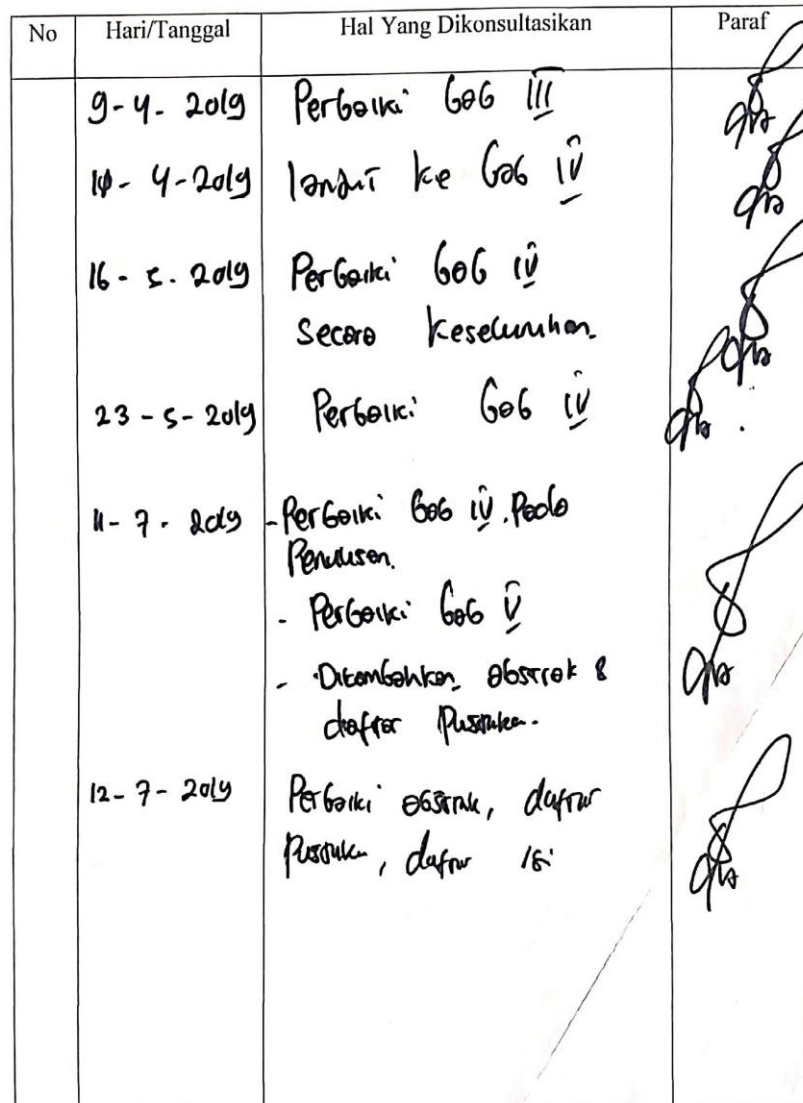 No Hari/Tanggal Hal Yang Dikonsultasikan Paraf
9-4-2019 Perbaiki bab III
10-4-2019 lanjut ke bab IV
16-5-2019 Perbaiki bab IV
Secara Keseluruhan.
23-5-2019 Perbaiki bab IV
11-7-2019 - Perbaiki bab IV. Pada
Penulisan.
- Perbaiki bab V
- Ditambahkan abstrak &
daftar Pustaka.
12-7-2019 Perbaiki abstrak, daftar
Pustaka, daftar isi